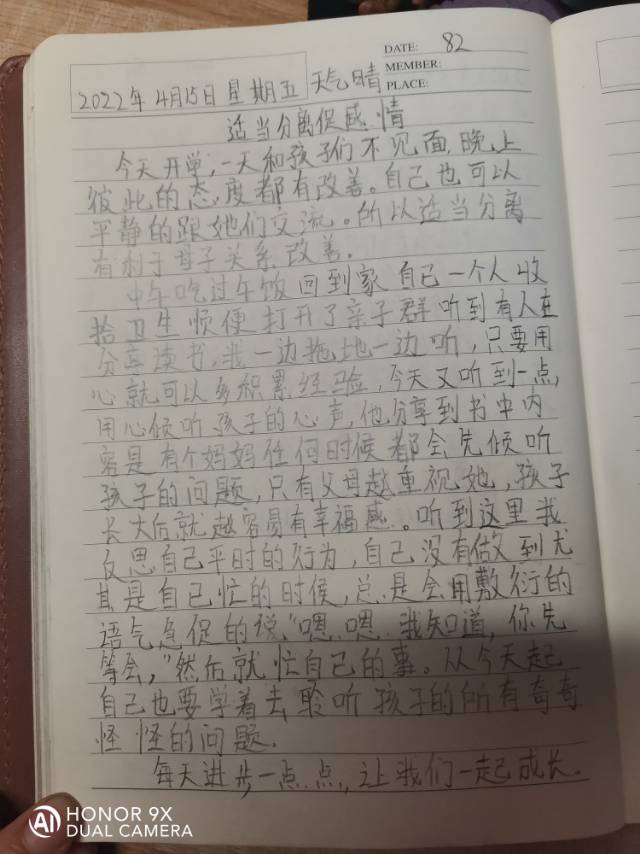 DATE: 82
MEMBER:
PLACE:
2022年4月15日星期五 天气晴
适当分离促感情
今天开学,一天和孩子们不见面,晚上
彼此的态度都有改善。自己也可以
平静的跟她们交流。所以适当分离
有利于母子关系改善。
中午吃过午饭回到家自己一个人收
拾卫生顺便打开了亲子群听到有人在
分享读书,我一边拖地一边听,只要用
心就可以多积累经验,今天又听到一点,
用心倾听孩子的心声,他分享到书中内
容是有个妈妈任何时候都会先倾听
孩子的问题,只有父母越重视她,孩子
长大后就越容易有幸福感。听到这里我
反思自己平时的行为,自己没有做到尤
其是自己忙的时候,总是会用敷衍的
语气急促的说,"嗯嗯我知道,你先
等会,"然后就忙自己的事。从今天起
自己也要学着去聆听孩子的所有奇奇
怪怪的问题.
每天进步一点点,让我们一起成长。
AI HONOR 9X
DUAL CAMERA